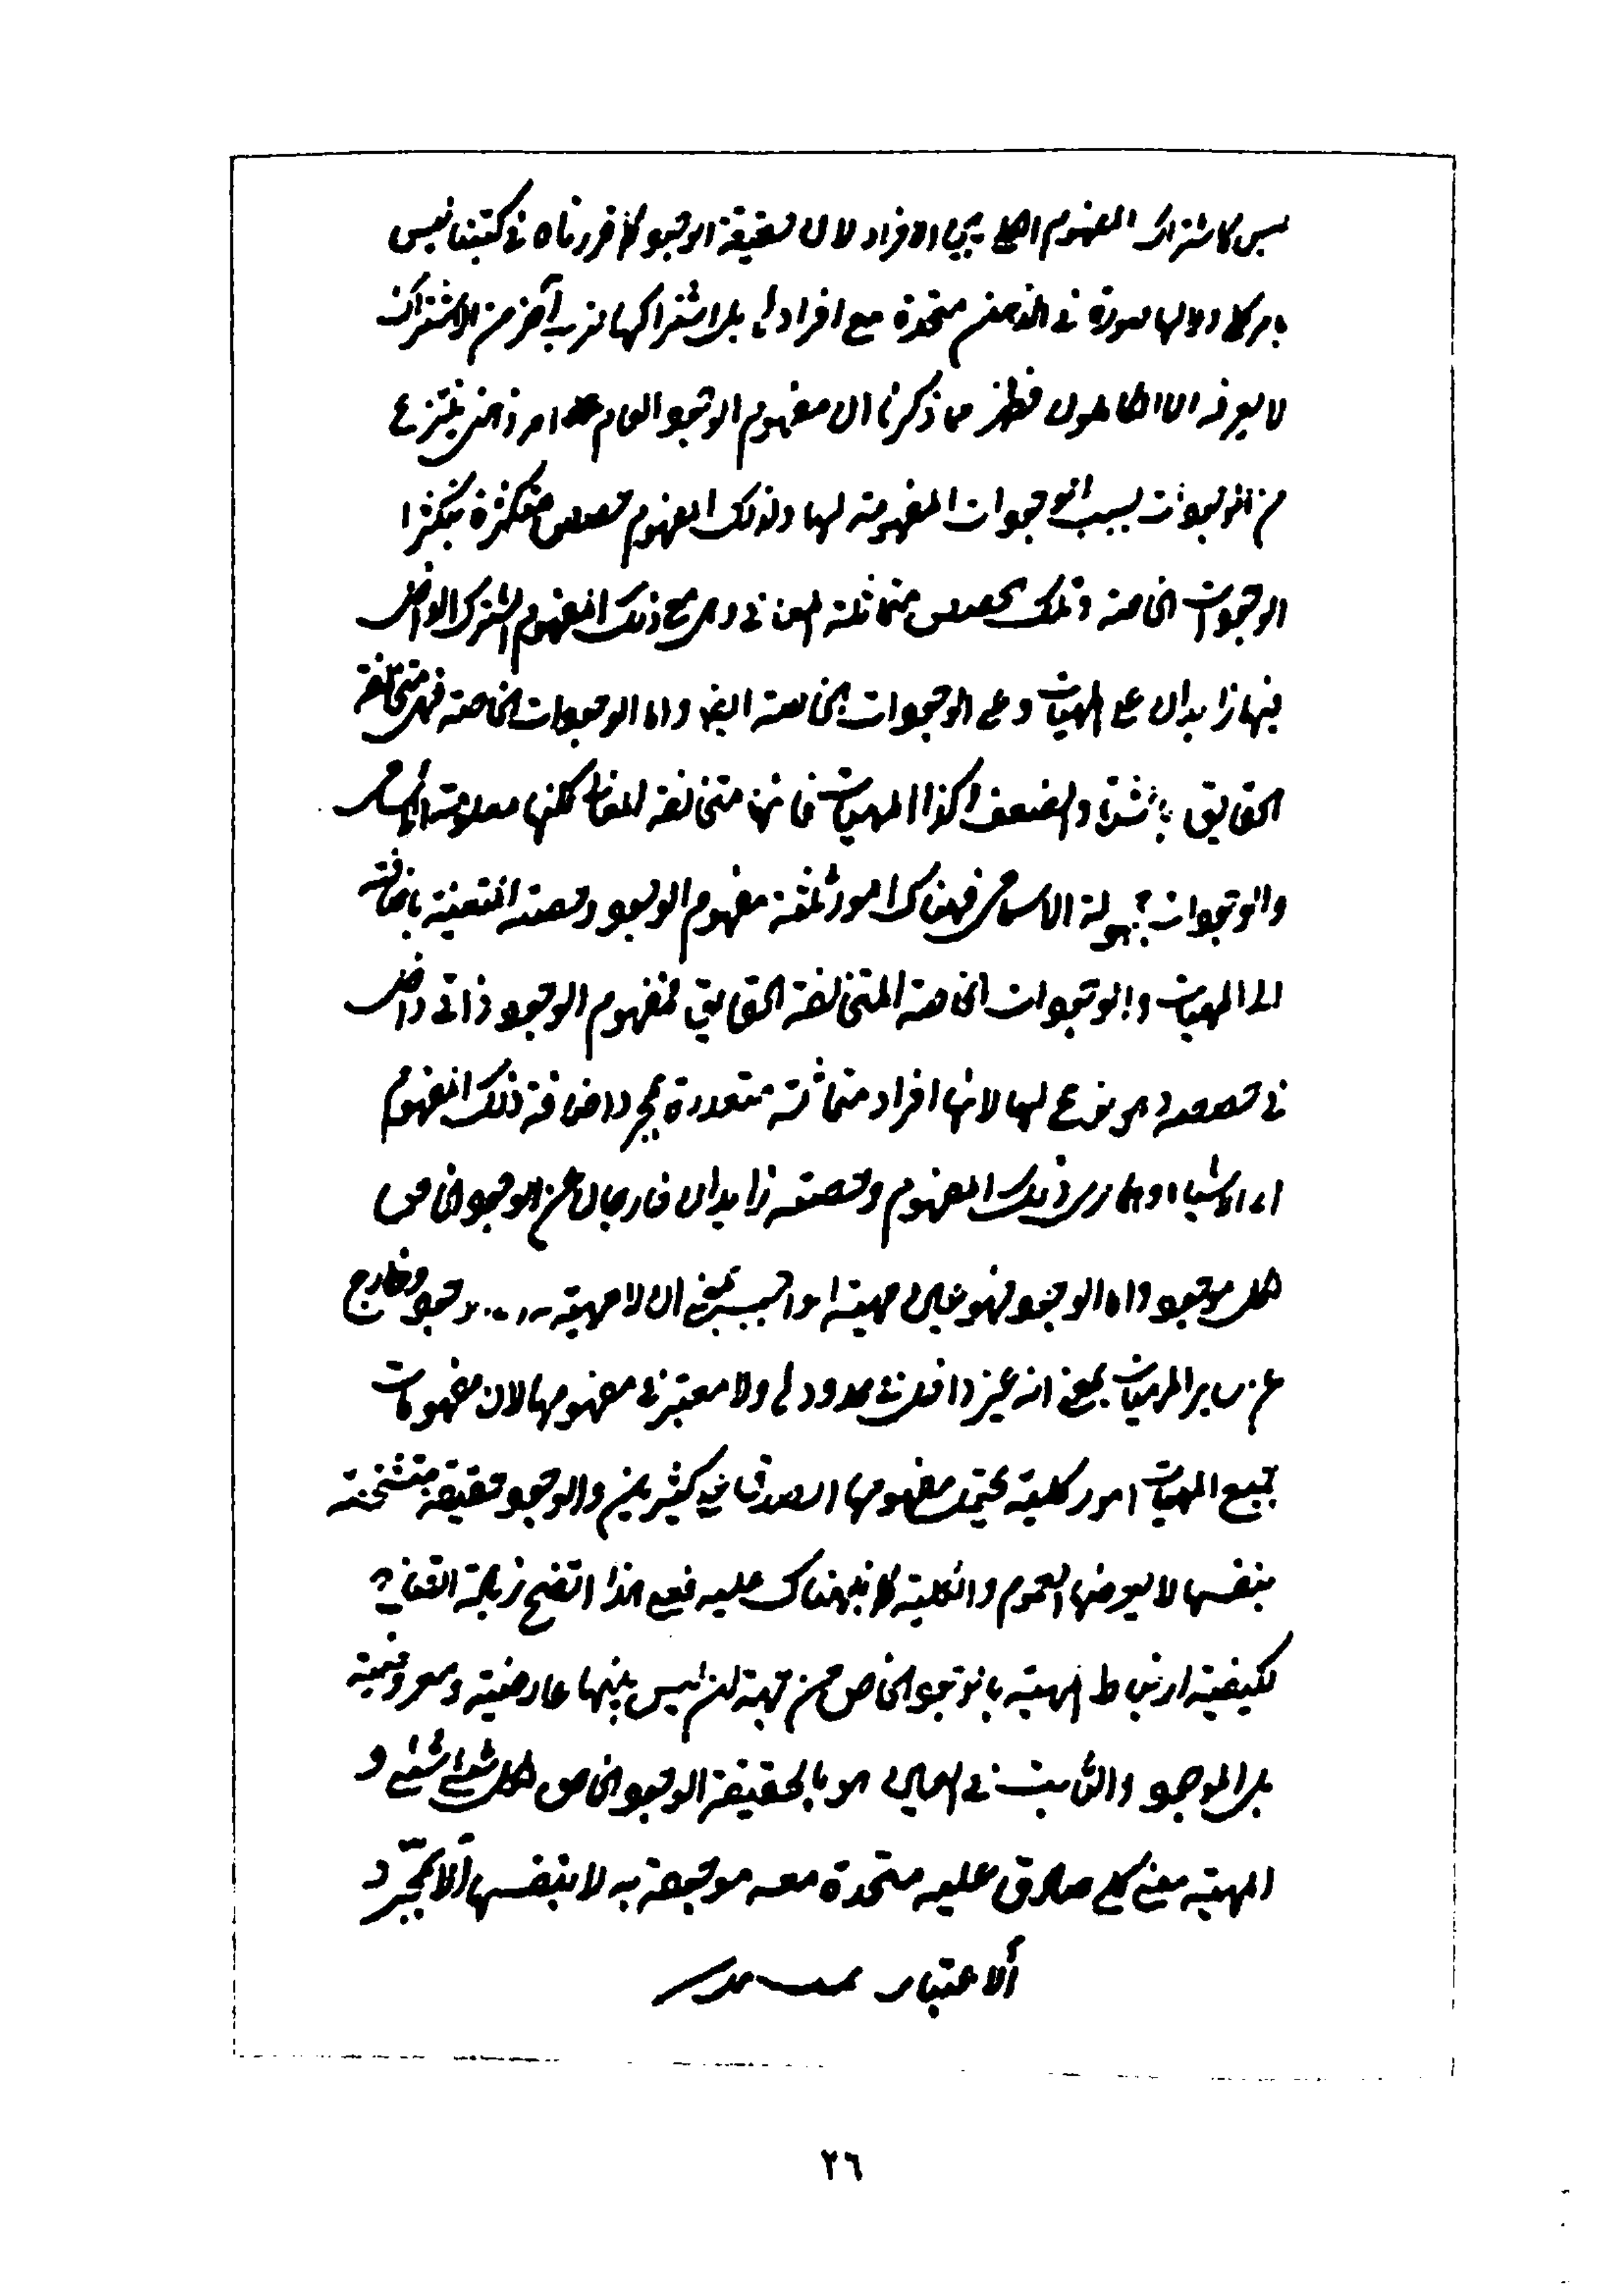 ليس كاشتراك المفهوم الكلي بين الافراد لان حقيقة الوجود كما قررناه في كتبنا ليس
بامر كلي ولا لها صورة في الذهن متحدة مع افرادها بل اشتراكها ضرب آخر من الاشتراك
لا يعرفه الا الكاملون فظهر مما ذكرنا ان مفهوم الوجود العام امر ذهني ينتزع
من الموجودات بسبب الوجودات المفهومة لها ولذلك المفهوم حصص متكثرة بتكثر
الوجودات الخاصة وتلك الحصص متماثلة المعاني وهي مع ذلك المفهوم المشترك الداخل
فيها زايدان على المهيات وعلى الوجودات الخاصة ايضا واما الوجودات الخاصة فهي متخالفة
الحقايق بالشدة والضعف وكذا المهيات فانها متخالفة المعاني لكنها معلومة الاسامي
والوجودات مجهولة الاسامي فهناك امور ثلثة مفهوم الوجود وحصته المتعينة باضافته
الى المهيات والوجودات الخاصة المتخالفة الحقايق فمفهوم الوجود ذاتي داخل
في حصصه وهو نوع لها لانها افراد متماثلة متعددة بمجرد اضافة ذلك المفهوم
الى الاشياء وذلك المفهوم وحصته زايدان خارجان عن الوجود الخاص
لكل موجود واما الوجود فهو عين مهية الواجب بمعنى ان لا مهية له وجود وخارج
عن ساير المهيات بمعنى انه غير داخل في حدودها ولا معتبر في مفهومها لان مفهومات
جميع المهيات امور كلية يحتمل مفهومها الصدق على كثيرين والوجود حقيقة متشخصة
بنفسها لا يعرضها العموم والكلية كما نبهناك عليه فمع هذا اتضح زيادة اتضاح
لكيفية ارتباط المهية بالوجود الخاص من جهة ان ليس بينها عارضية ومعروضية
بل الموجود والثابت في العين هو بالحقيقة الوجود الخاص لكل شئ شئ و
المهية معنى كلي صادق عليه متحدة معه موجودة به لا بنفسها الا بمجرد
الاعتبار
٢٦